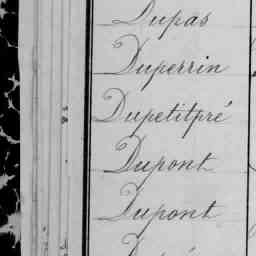 Dupas
Duperrin
Dupetitpré
Dupont
Dupont